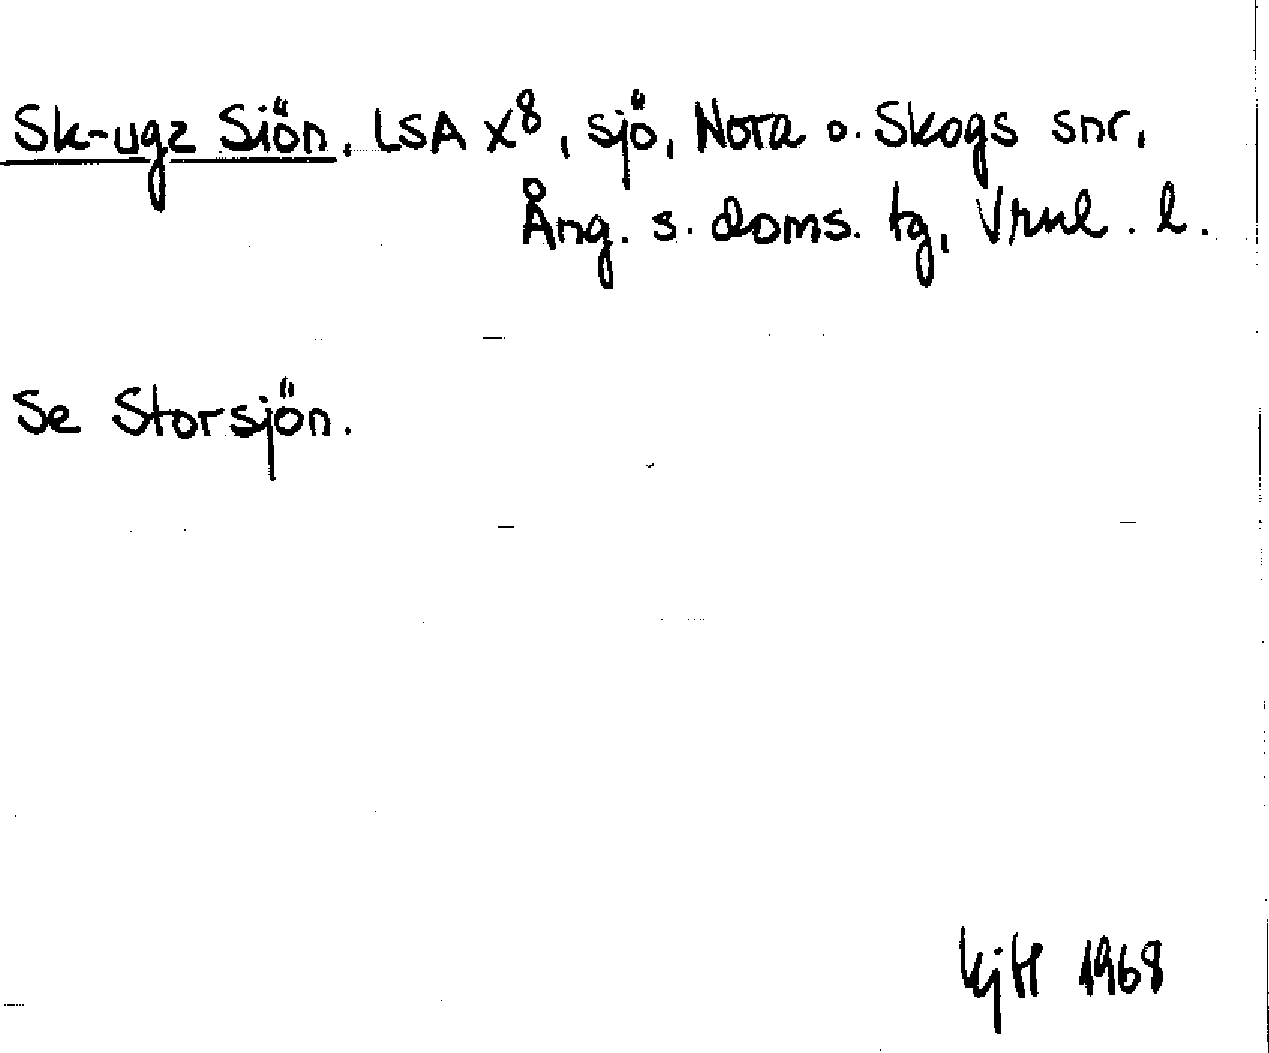 Sk-ugz Siön, LSA X⁸, sjö, Nora o. Skogs snr,
Ång. s. doms. tg, Vrnl. l.
Se Storsjön.
KjH 1968